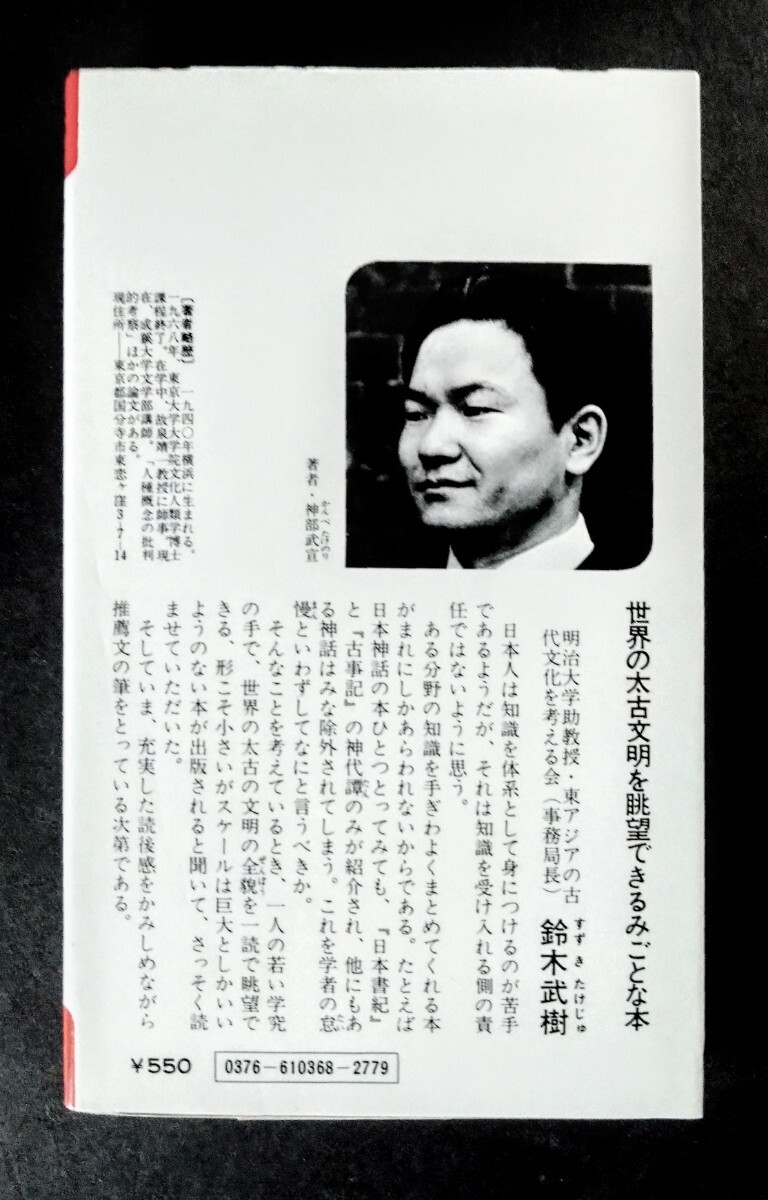 世界の太古文明を眺望できるみごとな本
明治大学助教授・東アジアの古
代文化を考える会（事務局長）
鈴木武樹
すずき たけじゅ
日本人は知識を体系として身につけるのが苦手
であるようだが、それは知識を受け入れる側の責
任ではないように思う。
ある分野の知識を手ぎわよくまとめてくれる本
がまれにしかあらわれないからである。たとえば
日本神話の本ひとつとってみても、『日本書紀』
と『古事記』の神代譚のみが紹介され、他にもあ
る神話はみな除外されてしまう。これを学者の怠
慢といわずしてなにと言うべきか。
そんなことを考えているとき、一人の若い学究
の手で、世界の太古の文明の全貌を一読で眺望で
きる、形こそ小さいがスケールは巨大としかいい
ようのない本が出版されると聞いて、さっそく読
ませていただいた。
そしていま、充実した読後感をかみしめながら
推薦文の筆をとっている次第である。
著者・神部武宣
かんべ たけのり
［著者略歴］ 一九四〇年横浜に生まれる。
一九六八年、東京大学大学院文化人類学博士
課程終了。在学中、故泉靖一教授に師事。現
在、成蹊大学文学部講師。「人種概念の批判
的考察」ほかの論文がある。
現住所――東京都国分寺市東恋ヶ窪3-7-14
¥550
0376-610368-2779